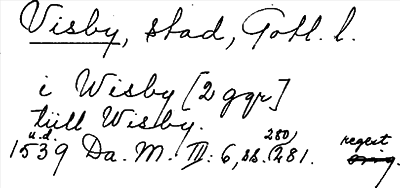 Visby, stad, Gotl. l.
i Wisby [2 ggr]
tüll Wisby.
u.d. 280, regest
1539 Da. M. III: 6, ss. 281. orig.